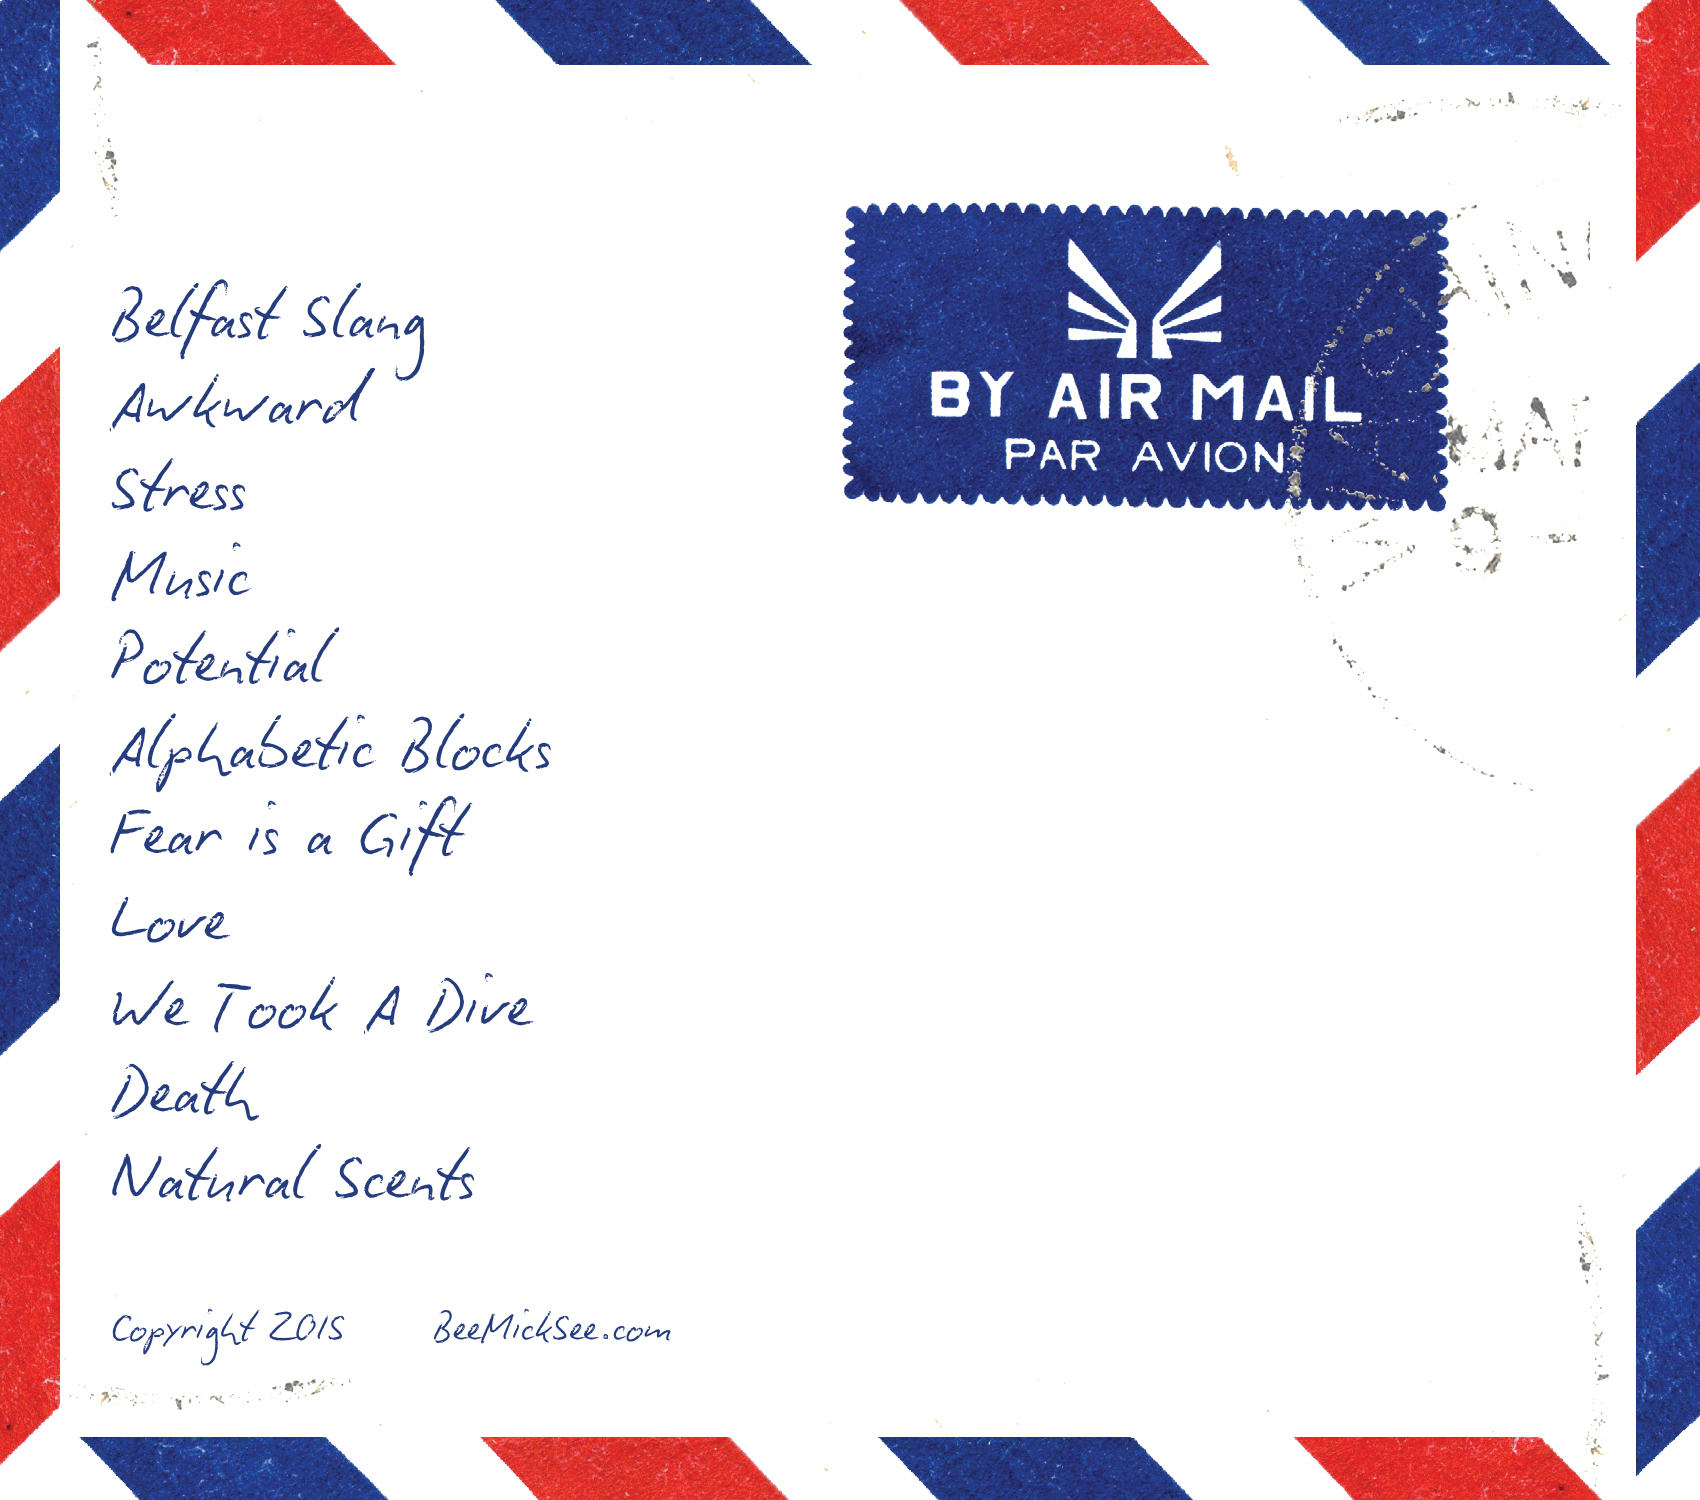 Belfast Slang
Awkward
Stress
Music
Potential
Alphabetic Blocks
Fear is a Gift
Love
We Took A Dive
Death
Natural Scents
Copyright 2015 BeeMickSee.com
BY AIR MAIL
PAR AVION